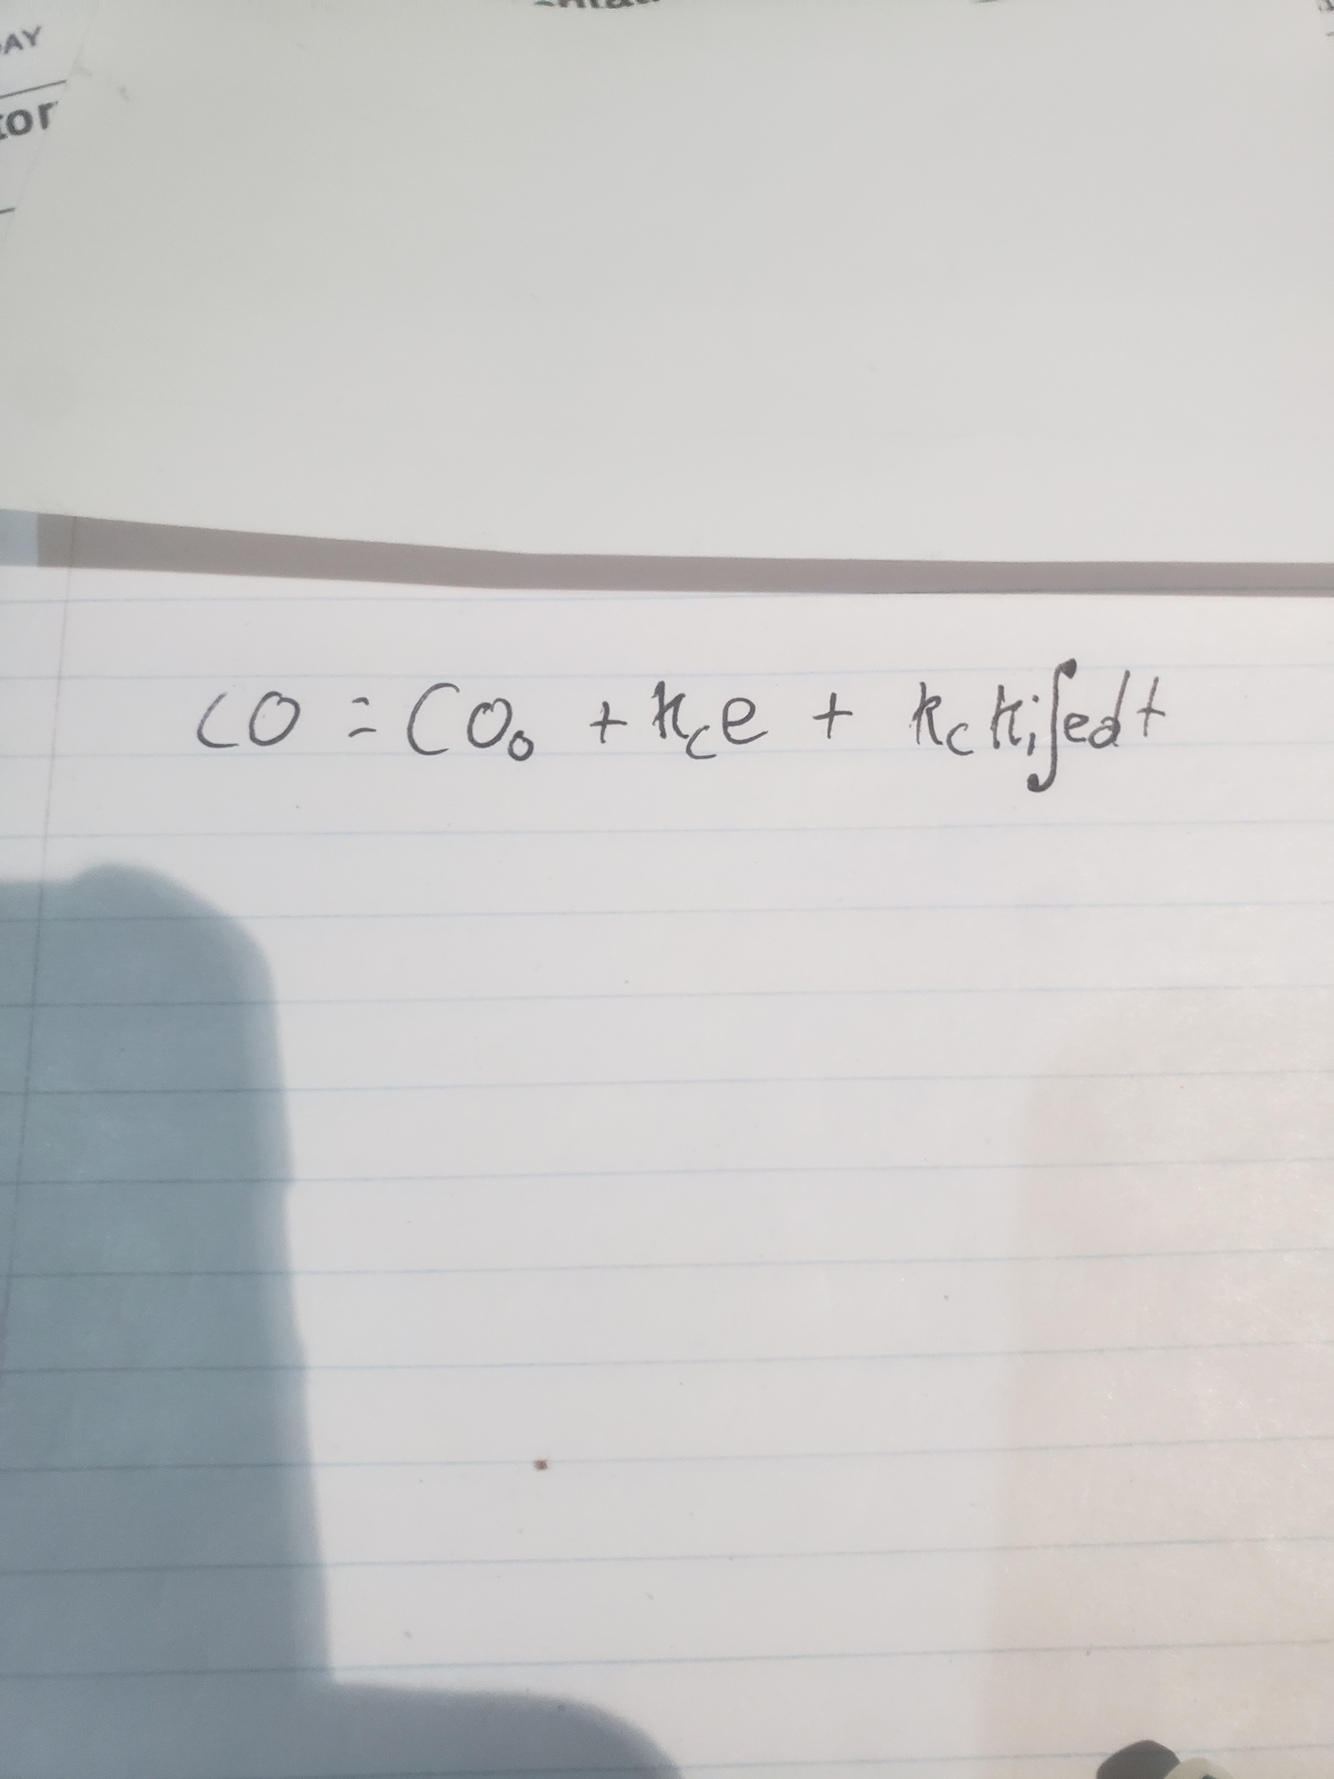 AY
tor
CO = CO₀ + k_c e + k_c k_i ∫edt